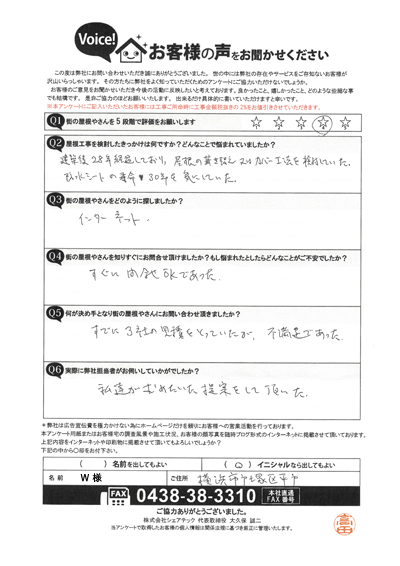 Voice!
お客様の声をお聞かせください
この度は弊社にお問い合わせいただき誠にありがとうございました。世の中には弊社の存在やサービスをご存知ないお客様が
沢山いらっしゃいます。その方たちに弊社をよく知っていただくためのアンケートにご協力いただけないでしょうか。
お客様のご意見をお聞かせいただき今後の活動に反映したいと考えております。良かったこと、嬉しかったこと、どのような些細な事
でも結構です。是非ご協力のほどお願いいたします。出来るだけ具体的に書いていただけますと幸いです。
※本アンケートにご記入いただいたお客様には工事ご用命時に工事金額総抜きの2%をお値引きさせていただきます。
Q1 街の屋根やさんを5段階で評価をお願いします
Q2 屋根工事を検討したきっかけは何ですか?どんなことで悩まれていましたか?
建築後28年経過しており、屋根の葺き替え又はカバー工法を検討していた。
防水シートの寿命30年を気にしていた。
Q3 街の屋根やさんをどのように探しましたか?
インターネット.
Q4 街の屋根やさんを知りすぐにお問合せ頂けましたか?もし悩まれたとしたらどんなことがご不安でしたか?
すぐに問合せOKであった.
Q5 何が決め手となり街の屋根やさんにお問い合わせ頂きましたか?
すでに3社の見積をとっていたが、不満足であった.
Q6 実際に弊社担当者がお伺いしていかがでしたか?
私達が求めていた提案をして頂いた.
*弊社は広告宣伝費を権力かけない為にホームページだけを頼りにお客様への営業活動を行っております。
本アンケート用紙またはお客様宅の調査風景や施工状況、お客様の顔写真を随時ブログ形式のインターネットに掲載させて頂いております。
上記内容をインターネットや印刷物に掲載させて頂いてもよろしいでしょうか?
下記の中から〇印をお付け下さい。
( ) 名前を出してもよい ( 〇 ) イニシャルなら出してもよい
名前 W様 ご住所 横浜市戸塚区平戸
FAX 0438-38-3310 本社直通 FAX番号
ご協力ありがとうございました。
株式会社シェアテック 代表取締役 大久保 誠二
当アンケートで取得したお客様の個人情報は関係法規に基づき厳正に管理いたします。